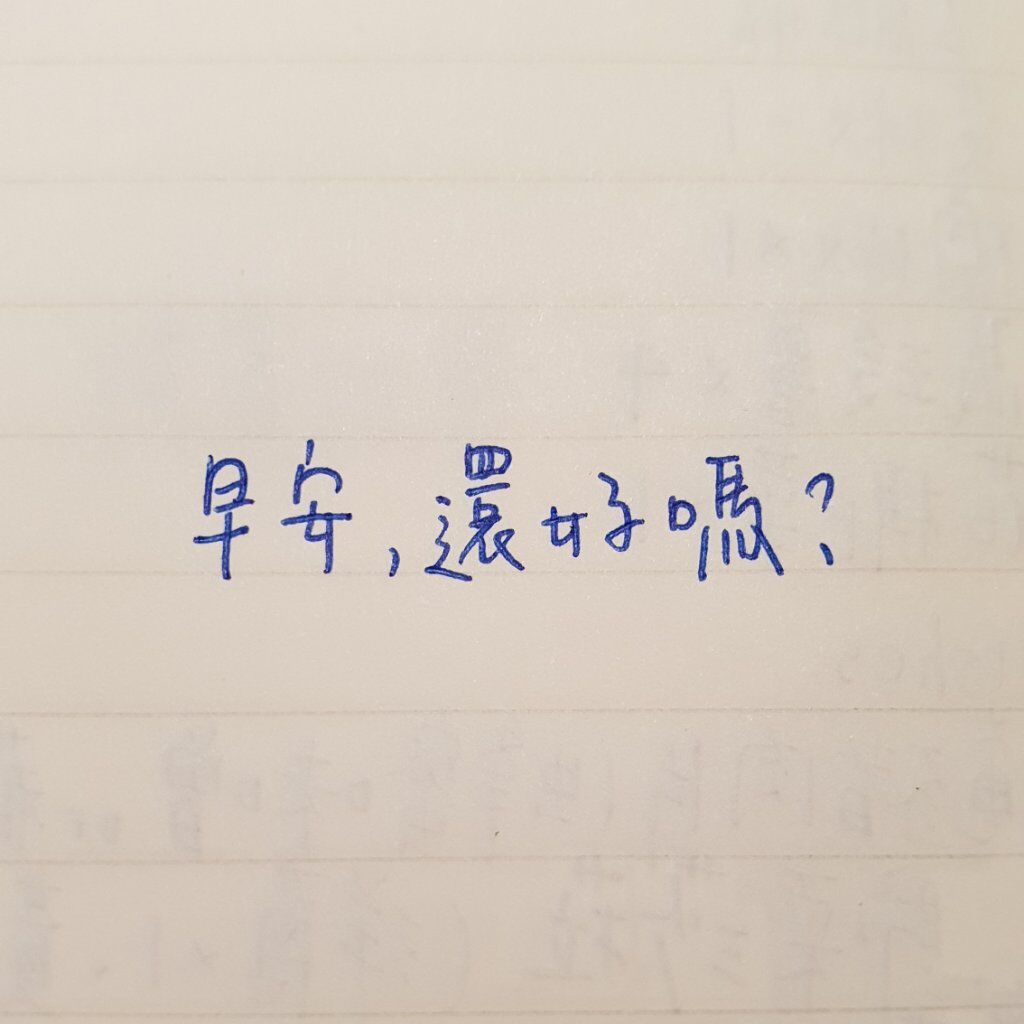 早安,還好嗎?